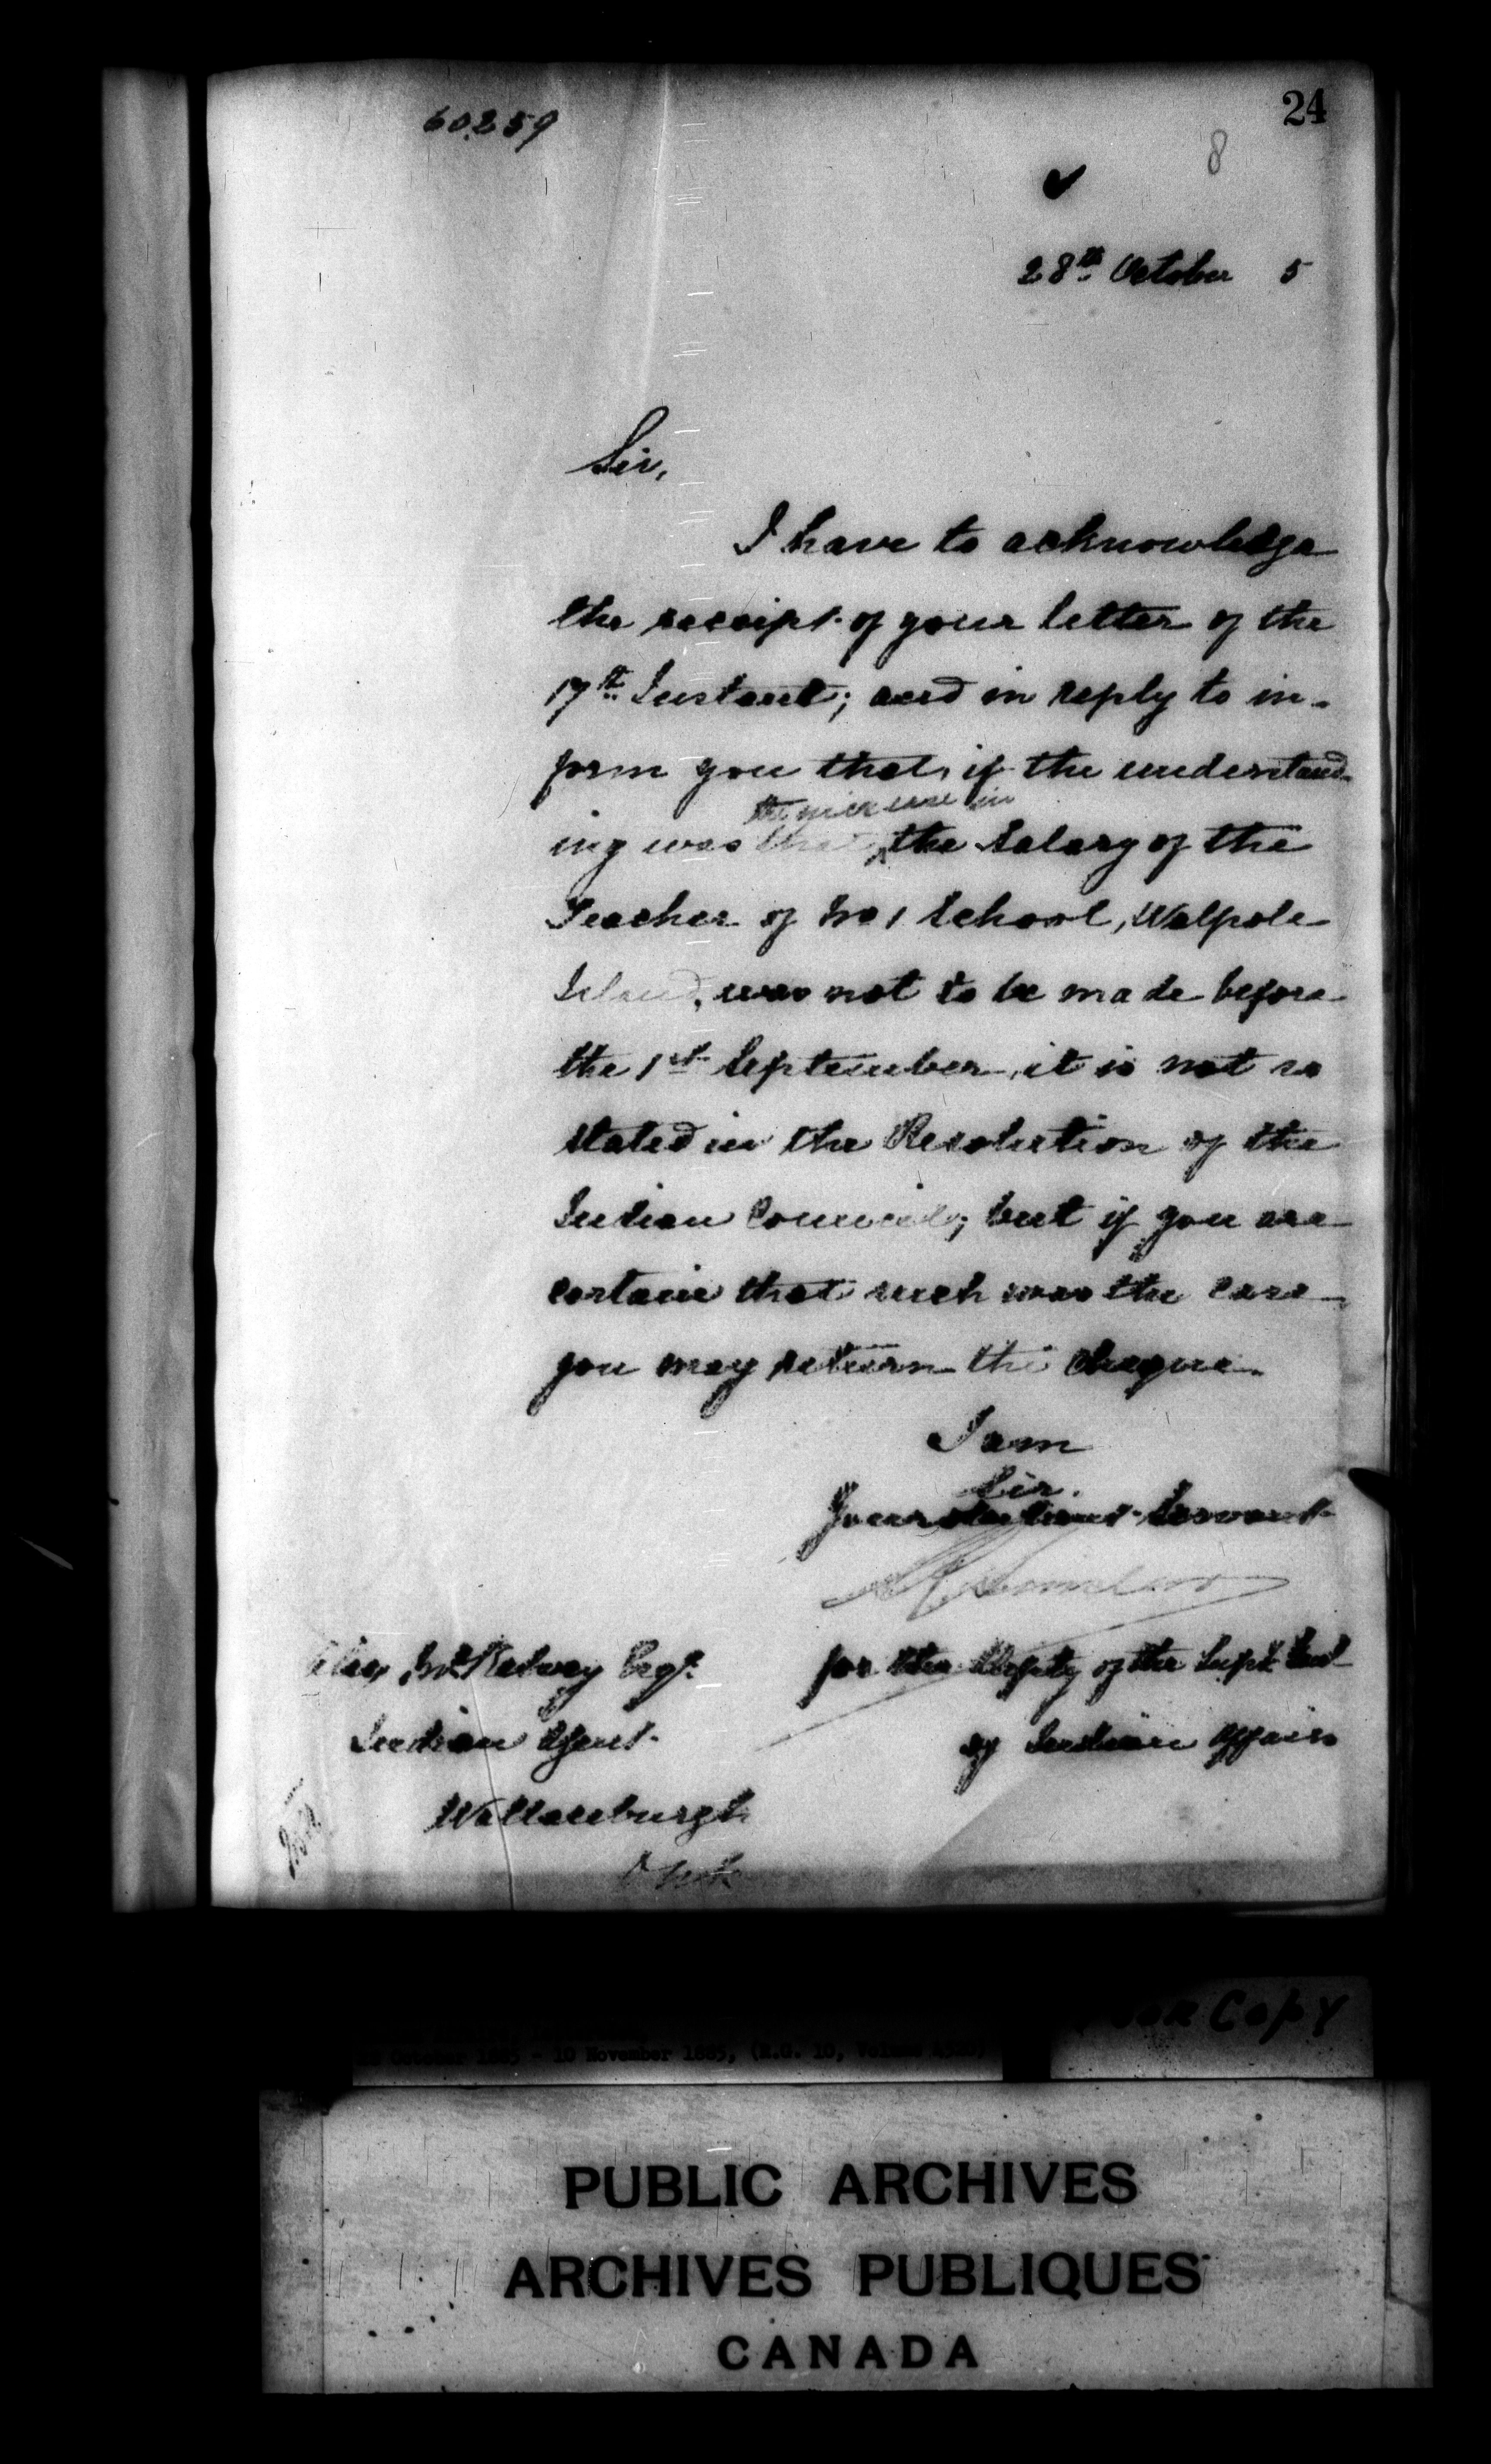 60259
24
8
28th October 5
Sir,
I have to acknowledge
the receipt of your letter of the
17th Instant; and in reply to in-
form you that, if the understand-
the increase in
ing was that the Salary of the
Teacher of No 1 School, Walpole
Island, was not to be made before
the 1st September, it is not so
stated in the Resolution of the
Indian Council; but if you are
certain that such was the case
you may return the cheque.
I am
Sir.
Your obedient Servant
for the Deputy of the Supt Genl
of Indian Affairs
Alex McKelvey Esqr.
Indian Agent
Wallaceburgh
Ont
Copy
October 1885 - 10 November 1885, (R.G. 10, Volume
PUBLIC ARCHIVES
ARCHIVES PUBLIQUES
CANADA